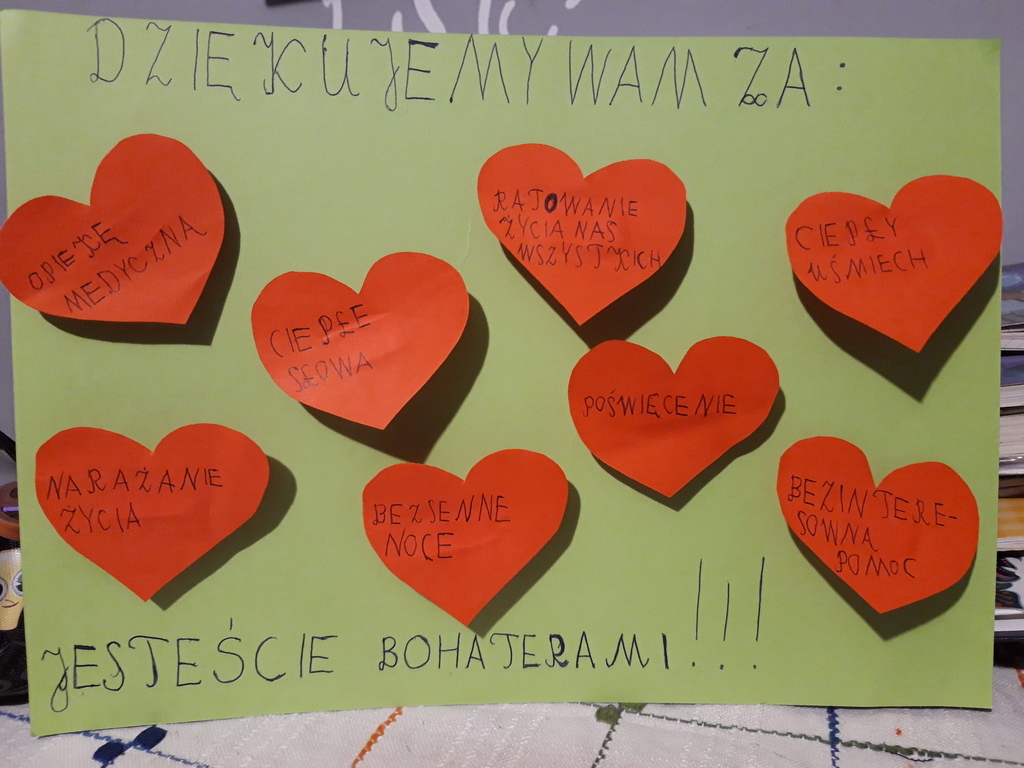 DZIĘKUJEMY WAM ZA:
OPIEKĘ
MEDYCZNĄ
CIEPŁE
SŁOWA
RATOWANIE
ŻYCIA NAS
WSZYSTKICH
CIEPŁY
UŚMIECH
POŚWIĘCENIE
NARAŻANIE
ŻYCIA
BEZSENNE
NOCE
BEZINTERE-
SOWNĄ
POMOC
JESTEŚCIE BOHATERAMI!!!